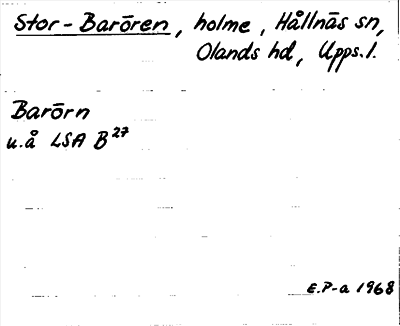 Stor-Barören, holme, Hållnäs sn,
Olands hd, Upps.l.
Barörn
u.å LSA B27
E.P-a 1968